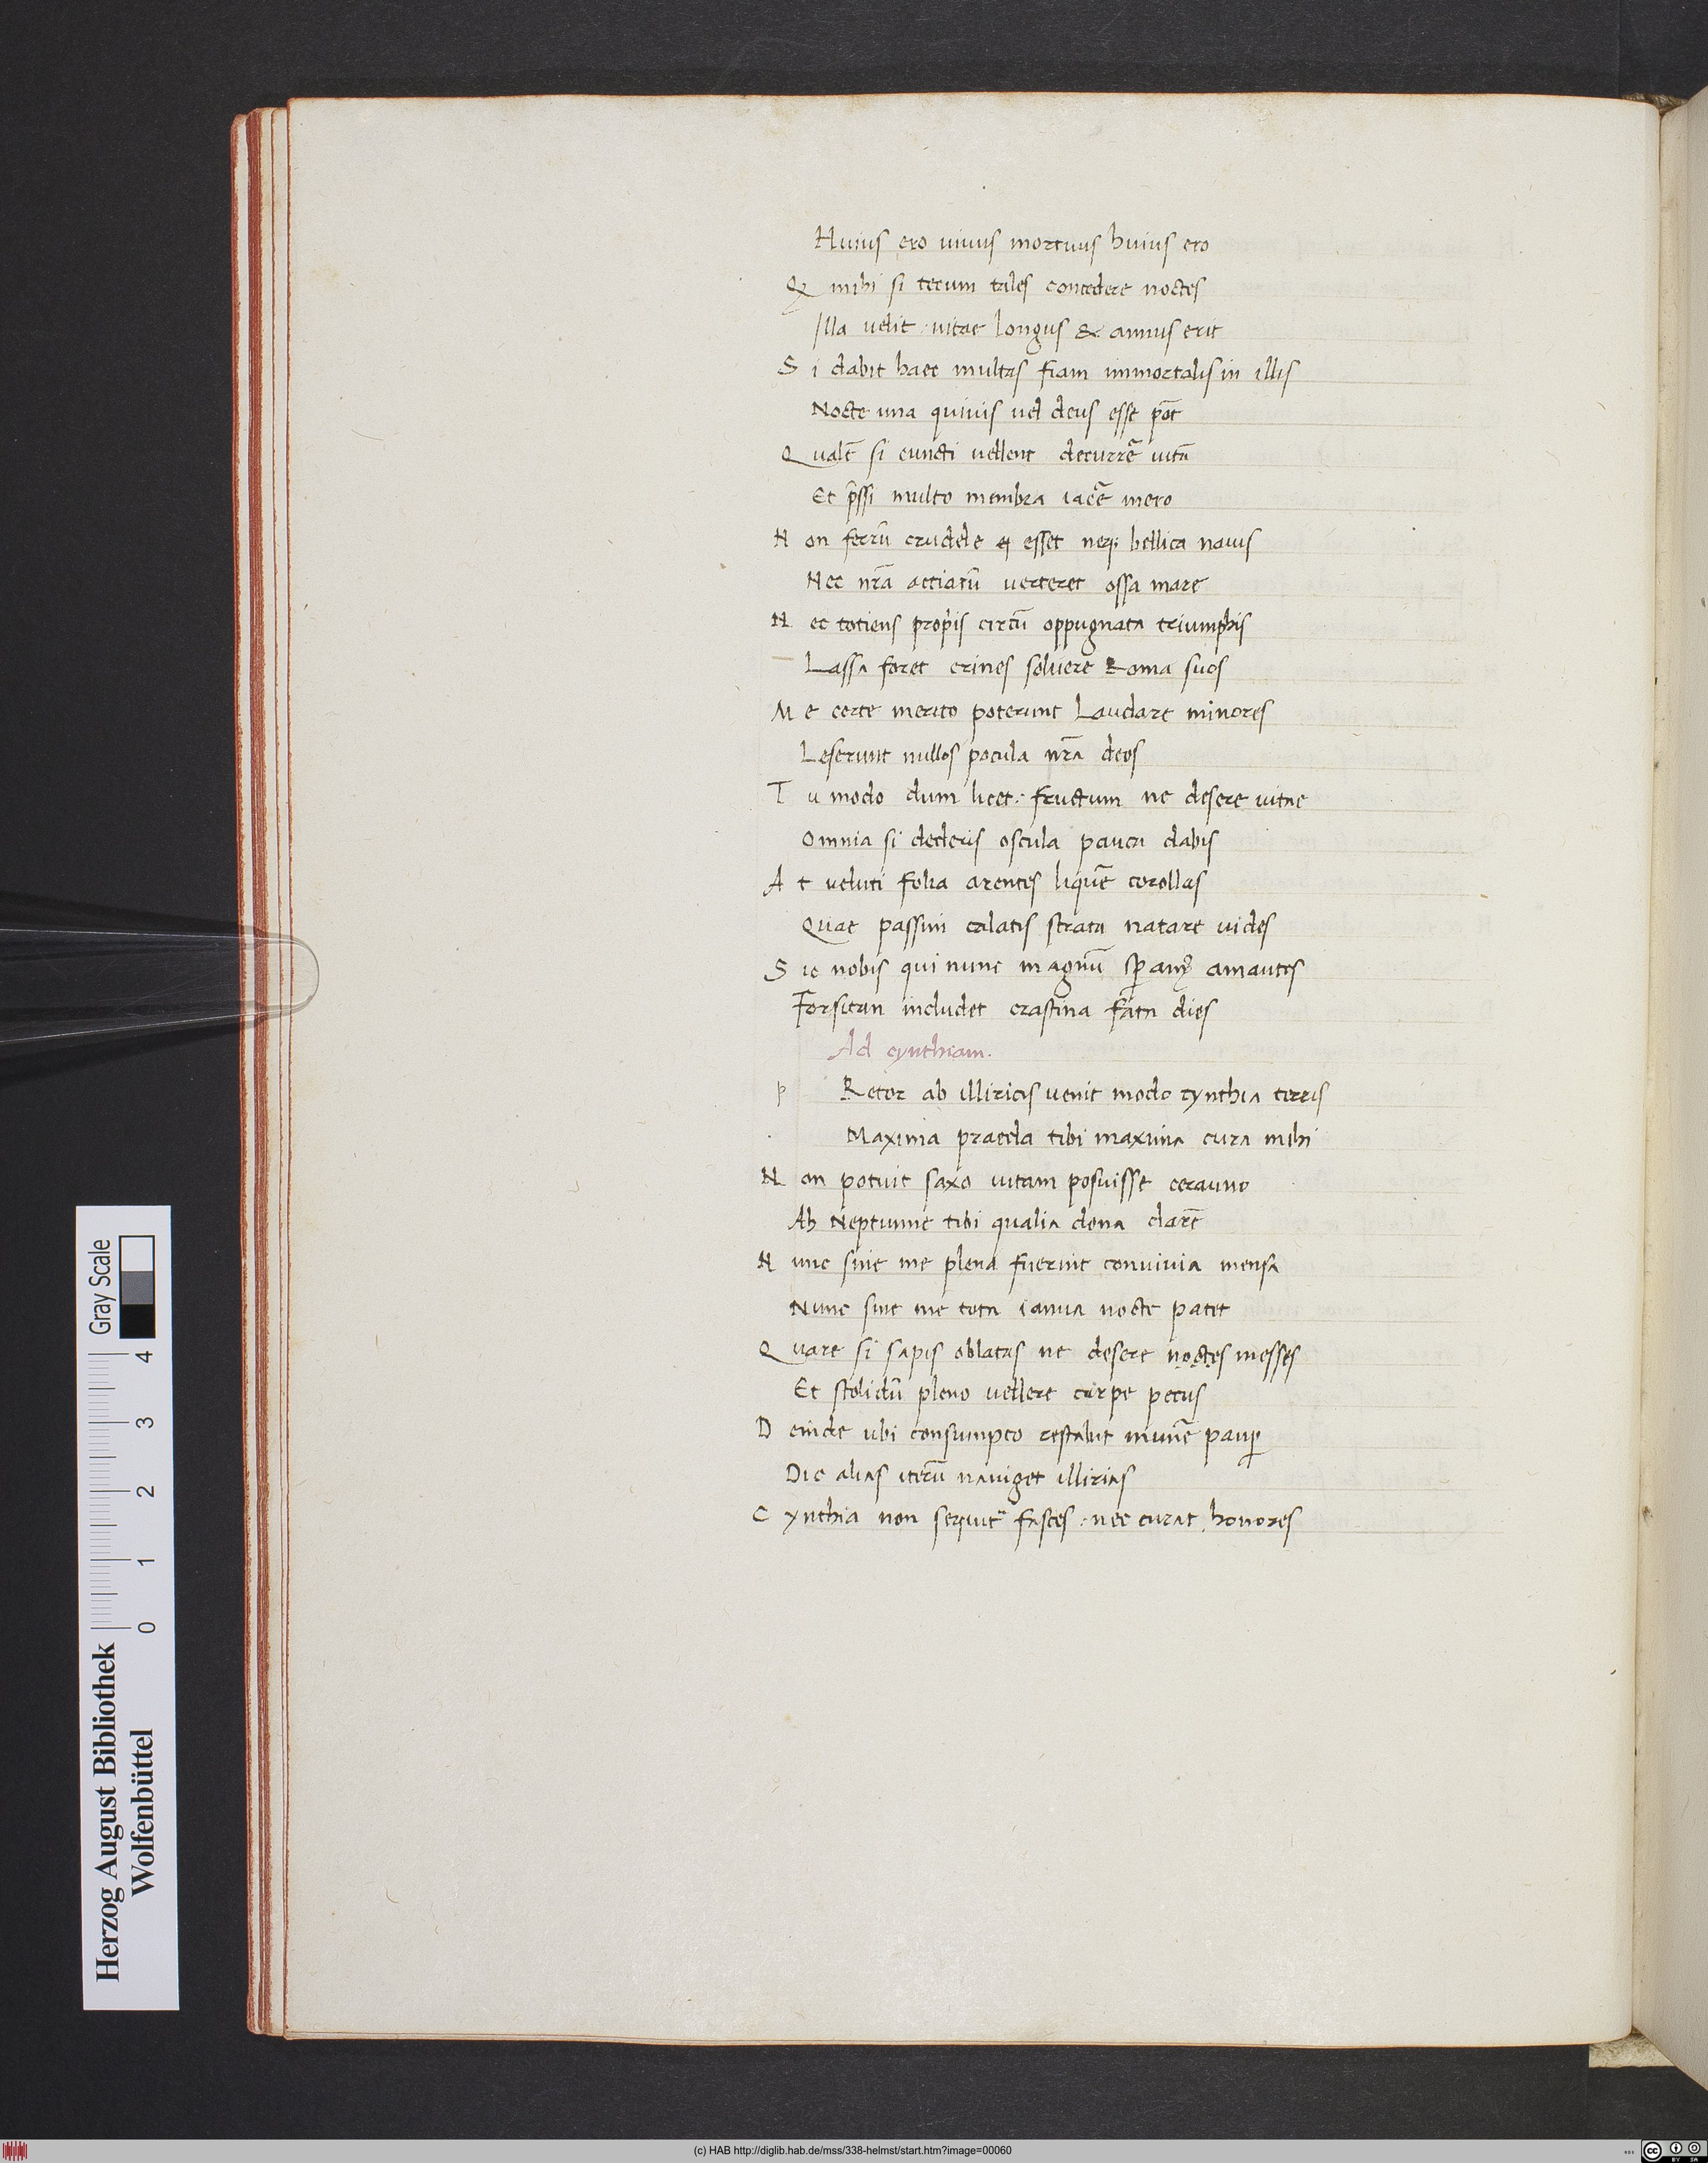 Huius ero uiuus mortuus huius ero
Q̃ mihi si tecum tales concedere noctes
Illa uelit: uitae longus & annus erit
S i dabit haec multas fiam immortalis in illis
Nocte una quiuis uel deus esse põt
Q ualẽ si cuncti uellent decurrẽ uitã
Et p̃ssi multo membra iacẽ mero
N on ferrũ crudele esset neq; bellica nauis
Nec nr̃a actiacũ verteret ossa mare
N ec totiens propriis circũ oppugnata triumphis
Lassa foret crines soluere Roma suos
M e certe merito poterunt Laudare minores
Leserunt nullos pocula nr̃a deos
T u modo dum licet: fructum ne desere uitae
Omnia si dederis oscula pauca dabis
A t ueluti folia arentes liquẽ corollas
Quae passim calatis strata natare uides
S ic nobis qui nunc magnũ amantes
Forsitan includet crastina fata dies
Ad cynthiam.
p Retor ab illiricis uenit modo cynthia terris
Maxima praeda tibi maxima cura mihi
N on potuit saxo uitam posuisse cerauno
Ah Neptunne tibi qualia dona darẽ
N unc sine me plena fuerint conuiuia mensa
Nunc sine me tota ianua nocte patet
Q uare si sapis oblatas ne desere noctes messes
Et stolidũ pleno uellere carpe pecus
D einde ubi consumpto restabit munẽ paup
Dic alias iterũ nauiget illirias
C ynthia non sequit᷑ fasces: nec curat honores
Herzog August Bibliothek
Wolfenbüttel
0 1 2 3 4
Gray Scale
(c) HAB http://diglib.hab.de/mss/338-helmst/start.htm?image=00060